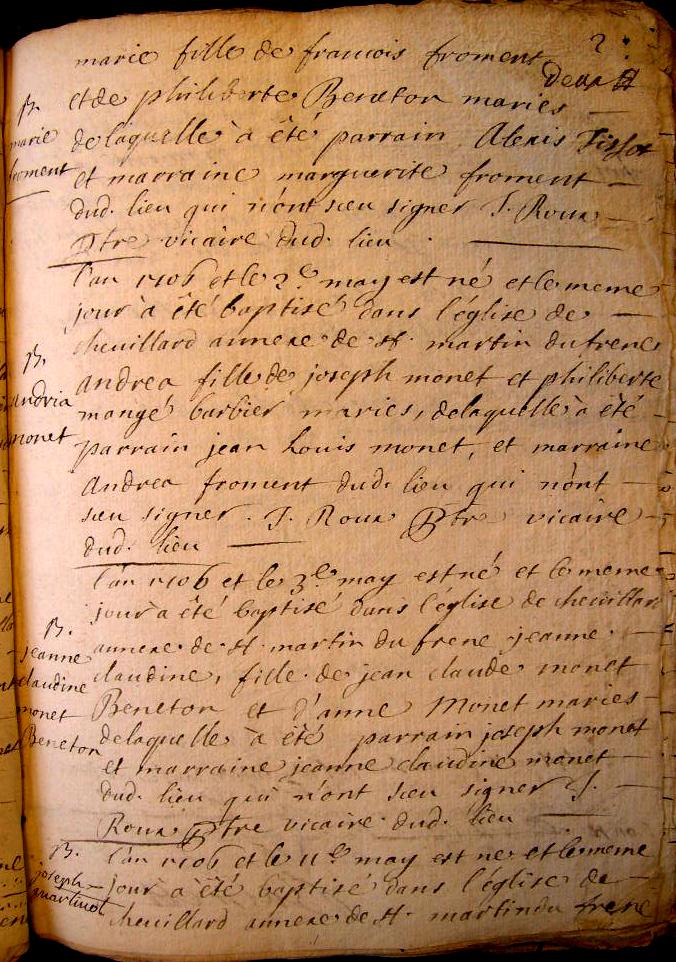 2
marie fille de francois froment
deux
et de philiberte Beneton maries
B.
marie
froment
de laquelle à été parrain Alexis Tissot
et marraine marguerite froment
dud. lieu qui n'ont sceu signer J. Roux
Ptre vicaire dud. lieu
l'an 1706 et le 2e may est né et le meme
jour à été baptisé dans l'église de
chevillard annexe de st. martin du frene
B.
andria
monet
Andrea fille de joseph monet et philiberte
mangé barbier maries, de laquelle à été
parrain jean Louis monet, et marraine
Andrea froment dud. lieu qui n'ont
sceu signer. J. Roux Ptre vicaire
dud. lieu
l'an 1706 et le 3e may est né et le meme
jour à été baptisé dans l'église de chevillard
B.
jeanne
claudine
monet
Beneton
annexe de st. martin du frene jeanne
claudine, fille de jean claude monet
Beneton et j'anne Monet maries
de laquelle à été parrain joseph monet
et marraine jeanne claudine monet
dud. lieu qui n'ont sceu signer J.
Roux Ptre vicaire dud. lieu
B.
joseph
martinot
l'an 1706 et le 11e may est ne et le meme
jour a été baptisé dans l'église de
chevillard annexe de st. martin du frene